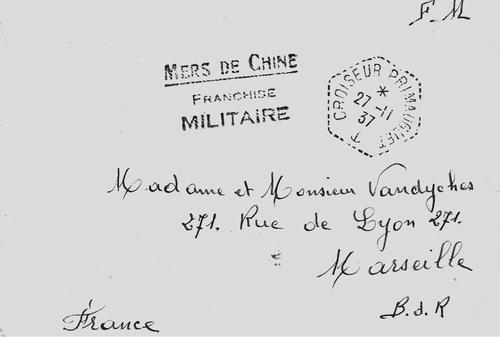 F. M
MERS DE CHINE
FRANCHISE
MILITAIRE
CROISEUR PRIMAUGUET
*
27-11
37
T
Madame et Monsieur Vandyches
271. Rue de Lyon 271.
Marseille
B.d.R
France